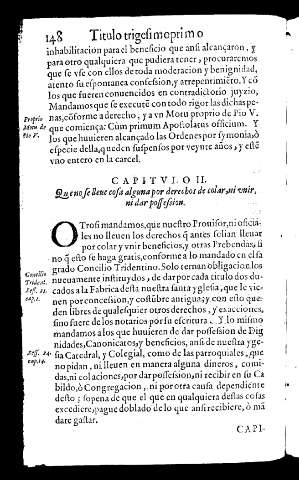 148 Titulo trigesimoprimo
inhabilitacion para el beneficio que ansi alcançaron, y
para otro qualquiera que pudiera tener, procuraremos
que se vse con ellos de toda moderacion y benignidad,
atento su espontanea confession, y arrepentimiẽto. Y cõ
los que fueren conuencidos en contradictorio juyzio,
Mandamos que se executẽ con todo rigor las dichas pe-
nas, cõforme a derecho, y a vn Motu proprio de Pio V.
Proprio
Motu de
Pio V.
que comiença: Cùm primum Apostolatus officium. Y
los que huuieren alcançado las Ordenes por symonia, ò
especie della, queden suspensos por veynte años, y estẽ
vno entero en la carcel.
CAPITVLO II.
Que no se lleue cosa alguna por derechos de colar, ni vnir,
ni dar possession.
OTrosi mandamos, que nuestro Prouisor, ni oficia-
les no lleuen los derechos q̃ antes solian lleuar
por colar y vnir beneficios, y otras Prebendas, si
no q̃ esto se haga gratis, conforme a lo mandado en el sa
grado Concilio Tridentino. Solo ternan obligacion los
Concilio
Tridẽt.
Sess. 21.
cap.1.
nueuamente instituydos, de dar por cada titulo dos du-
cados a la Fabrica desta nuestra santa yglesia, que le vie-
nen por concession, y costũbre antigua; y con esto que-
den libres de qualesquier otros derechos, y exacciones,
sino fuere de los notarios por su escritura. Y lo mismo
mandamos a los que huuieren de dar possession de Dig
nidades, Canonicatos, y beneficios, ansi de nuestra ygle-
Sess. 24.
cap.14.
sia Catedral, y Colegial, como de las parroquiales, que
no pidan, ni lleuen en manera alguna dineros, comi-
das, ni colaciones, por dar possession, ni recibir en su Ca
bildo, ò Congregacion, ni por otra causa dependiente
desto; so pena de que el que en qualquiera destas cosas
excediere, pague doblado de lo que ansi recibiere, ò mã
dare gastar.
CAPI-